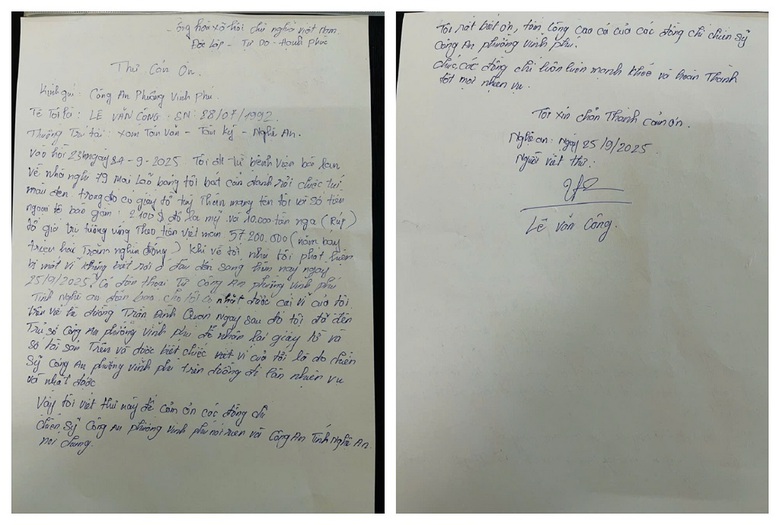 Cộng hòa xã hội chủ nghĩa việt nam
Độc lập - Tự Do - Hạnh Phúc
Thư Cảm Ơn.
Kính gửi: Công An Phường Vinh Phú.
Tê Tôi là: LÊ VĂN CÔNG. SN: 28/07/1992
Thường Trú tại: Xóm Tân Văn - Tân Kỳ - Nghệ An.
Vào hồi 23h ngày 24-9-2025 Tôi đi từ bệnh viện
về nhà nghỉ 79 Mai Lão Bạng tôi bất cẩn đánh rơi chiếc túi
màu đen trong đó có giấy tờ tùy Thân mang tên tôi và số tiền
ngoại tệ bao gồm: 2100 $ đô la mỹ và 10.000 tiền nga (Rúp)
tổ giá trị tương ứng Theo tiền việt nam 57.200.000 (năm bảy
triệu hai Trăm nghìn đồng) khi về tới nhà tôi phát hiện
bị mất vì không biết rơi ở đâu đến sáng hôm nay ngày
25/9/2025. Có điện thoại Từ công An phường vinh phú
Tỉnh nghệ an điện báo cho tôi có nhặt được cái ví của tôi
trên vỉa hè đường Trần Đình Quán ngay sau đó tôi đã đến
Trụ sở Công An phường vinh phú để nhận lại giấy tờ và
số tôi sản Trên và được biết chiếc ví của tôi là do chiến
Sỹ Công An phường vinh phú trên đường đi làm nhiệm vụ
và nhặt được
Vậy tôi viết thư này để cảm ơn các đồng chí
chiến sỹ Công An phường vinh phú nói riêng và Công An Tỉnh Nghệ An
nói chung.
Tôi rất biết ơn, tấm lòng cao cả của các đồng chí chiến sỹ
Công An phường vinh phú.
chúc các đồng chí luôn luôn mạnh khỏe và hoàn Thành
tốt mọi nhiệm vụ.
Tôi xin chân Thành cảm ơn.
Nghệ an: Ngày 25/9/2025
Người viết thư:
Lê Văn Công.